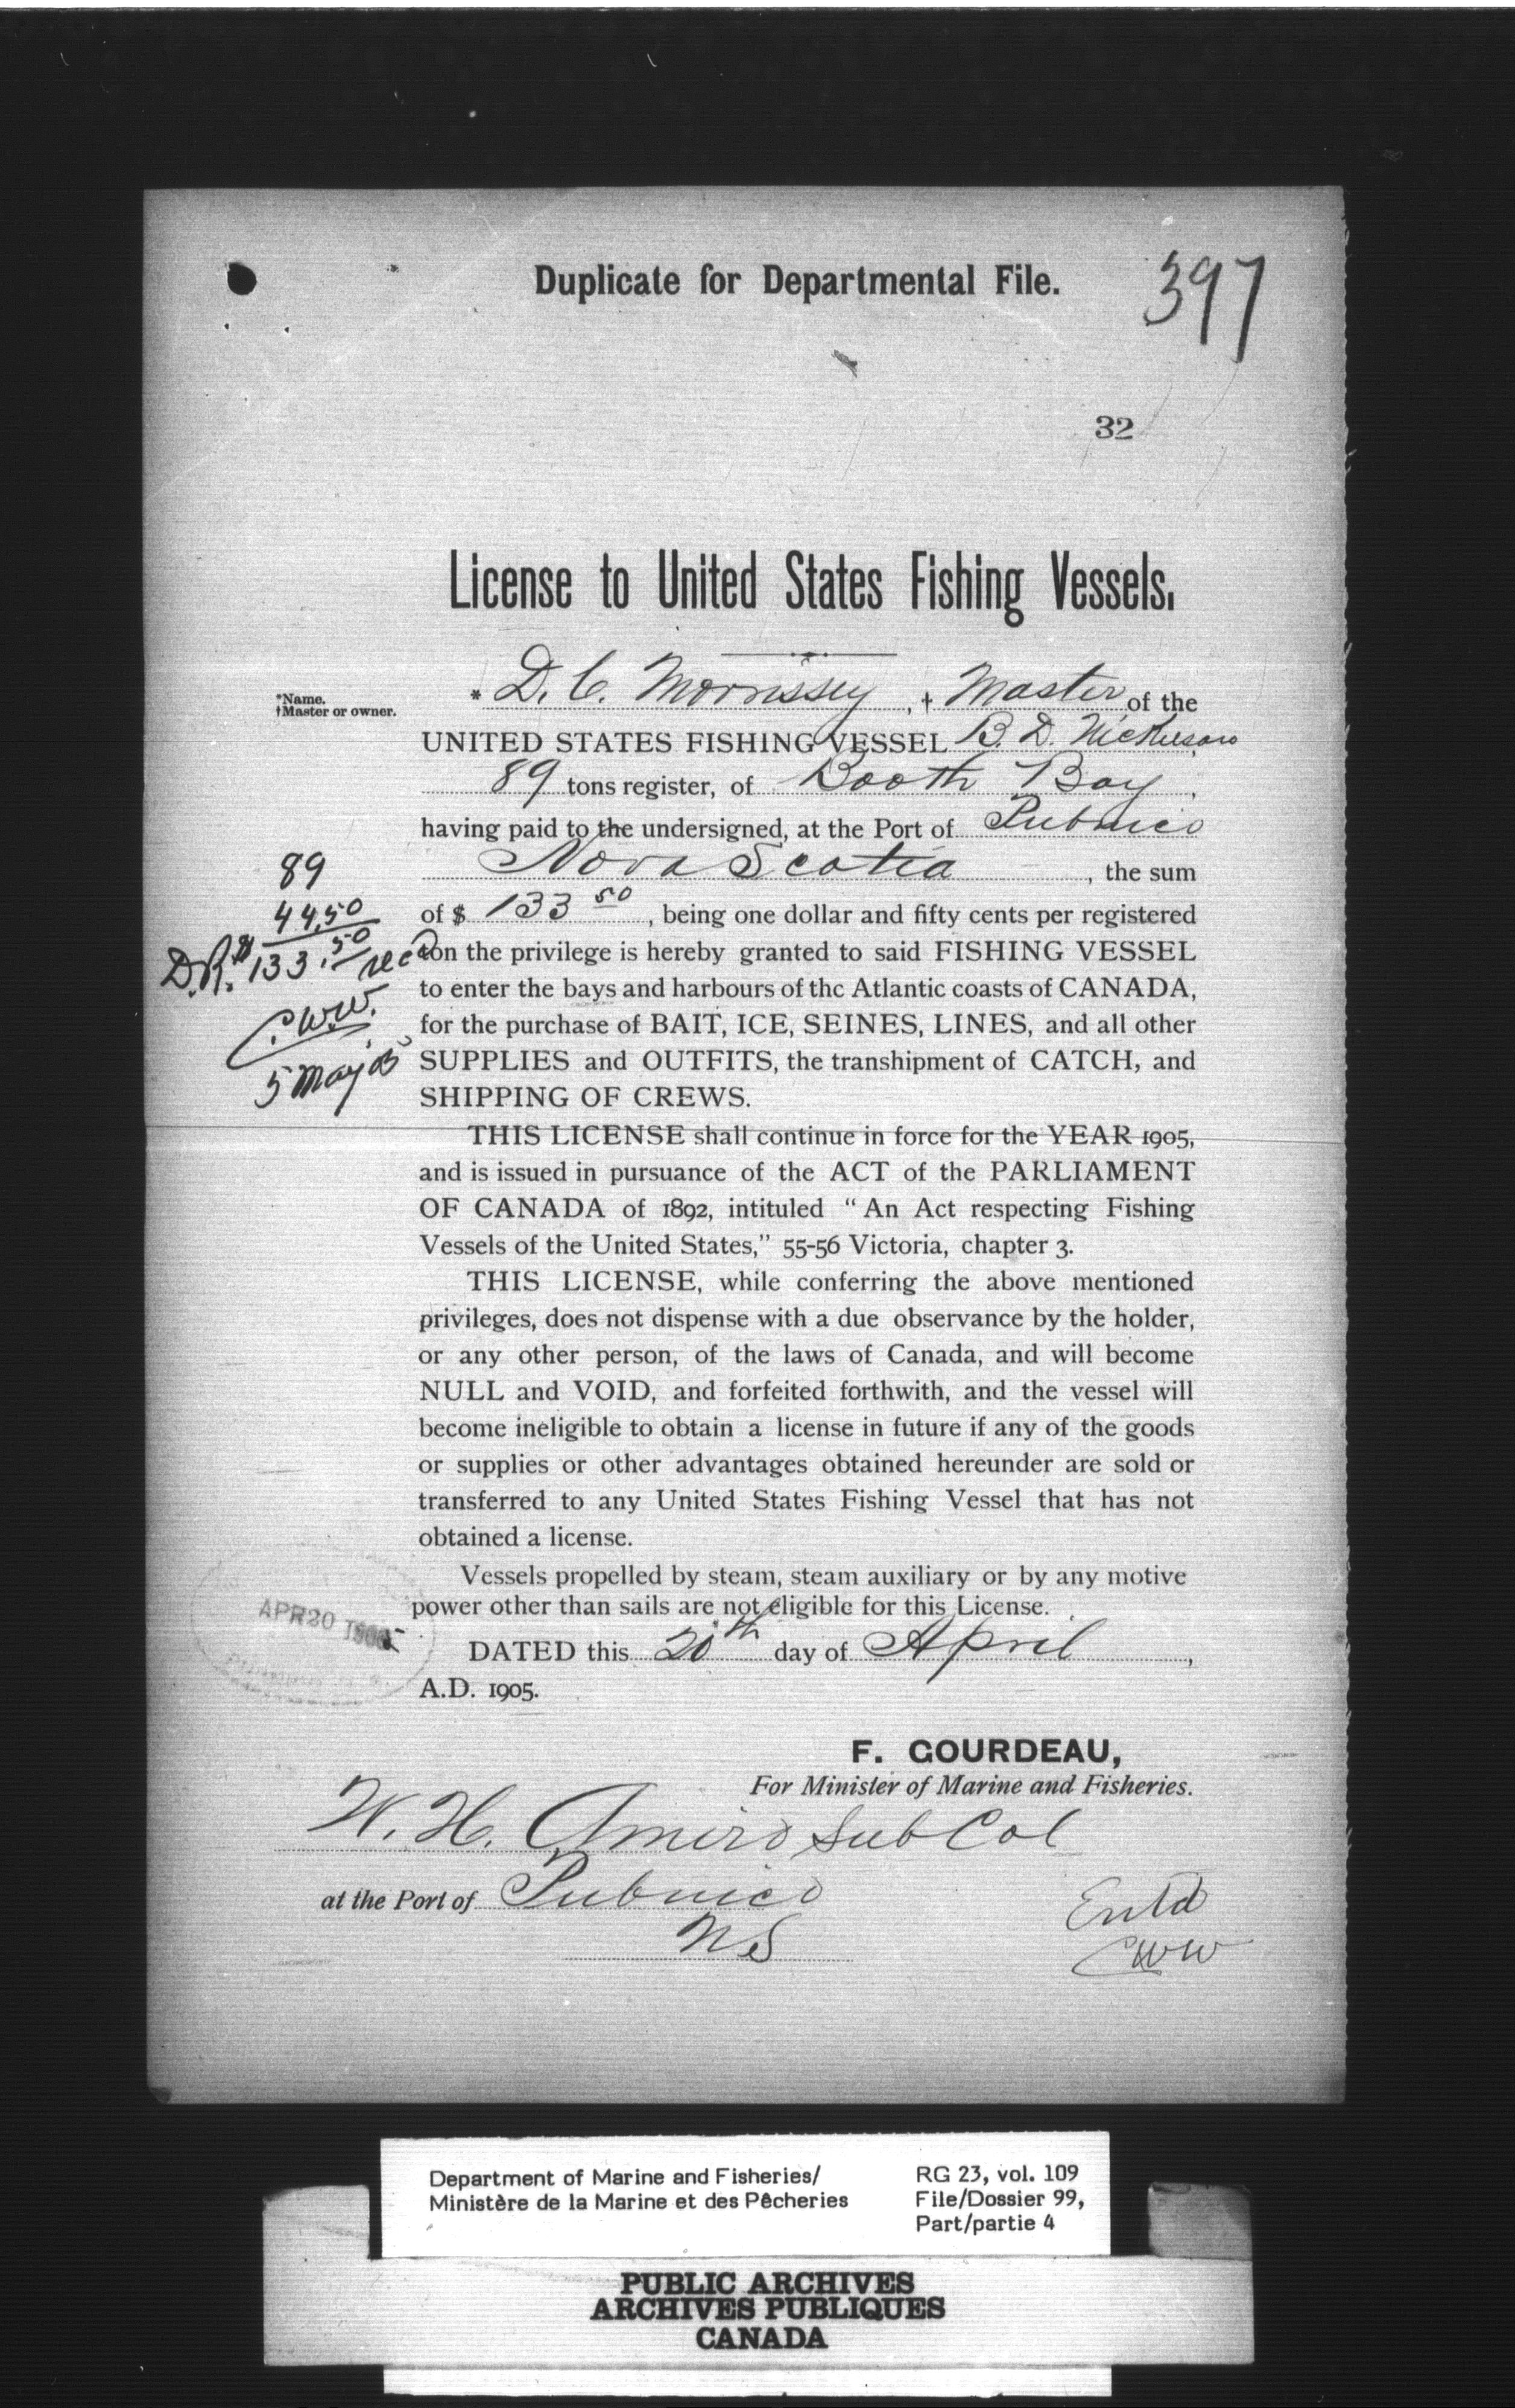 Duplicate for Departmental File.
397
32
License to United States Fishing Vessels.
*Name.
†Master or owner.
* D. C. Morrissey, † Master of the
UNITED STATES FISHING VESSEL B. D. Nickerson
89 tons register, of Booth Bay,
having paid to the undersigned, at the Port of Pubnico
Nova Scotia, the sum
of $ 133 50, being one dollar and fifty cents per registered
ton the privilege is hereby granted to said FISHING VESSEL
to enter the bays and harbours of the Atlantic coasts of CANADA,
for the purchase of BAIT, ICE, SEINES, LINES, and all other
SUPPLIES and OUTFITS, the transhipment of CATCH, and
SHIPPING OF CREWS.
89
44.50
D.R. $133.50 recd
C.W.W.
5 May 05
THIS LICENSE shall continue in force for the YEAR 1905,
and is issued in pursuance of the ACT of the PARLIAMENT
OF CANADA of 1892, intituled “An Act respecting Fishing
Vessels of the United States,” 55-56 Victoria, chapter 3.
THIS LICENSE, while conferring the above mentioned
privileges, does not dispense with a due observance by the holder,
or any other person, of the laws of Canada, and will become
NULL and VOID, and forfeited forthwith, and the vessel will
become ineligible to obtain a license in future if any of the goods
or supplies or other advantages obtained hereunder are sold or
transferred to any United States Fishing Vessel that has not
obtained a license.
Vessels propelled by steam, steam auxiliary or by any motive
power other than sails are not eligible for this License.
APR 20 1905
DATED this 20th day of April,
A.D. 1905.
F. GOURDEAU,
For Minister of Marine and Fisheries.
W. H. Amiro Sub Col
at the Port of Pubnico
NS
Entd
CWW
Department of Marine and Fisheries/
Ministère de la Marine et des Pêcheries
RG 23, vol. 109
File/Dossier 99,
Part/partie 4
PUBLIC ARCHIVES
ARCHIVES PUBLIQUES
CANADA